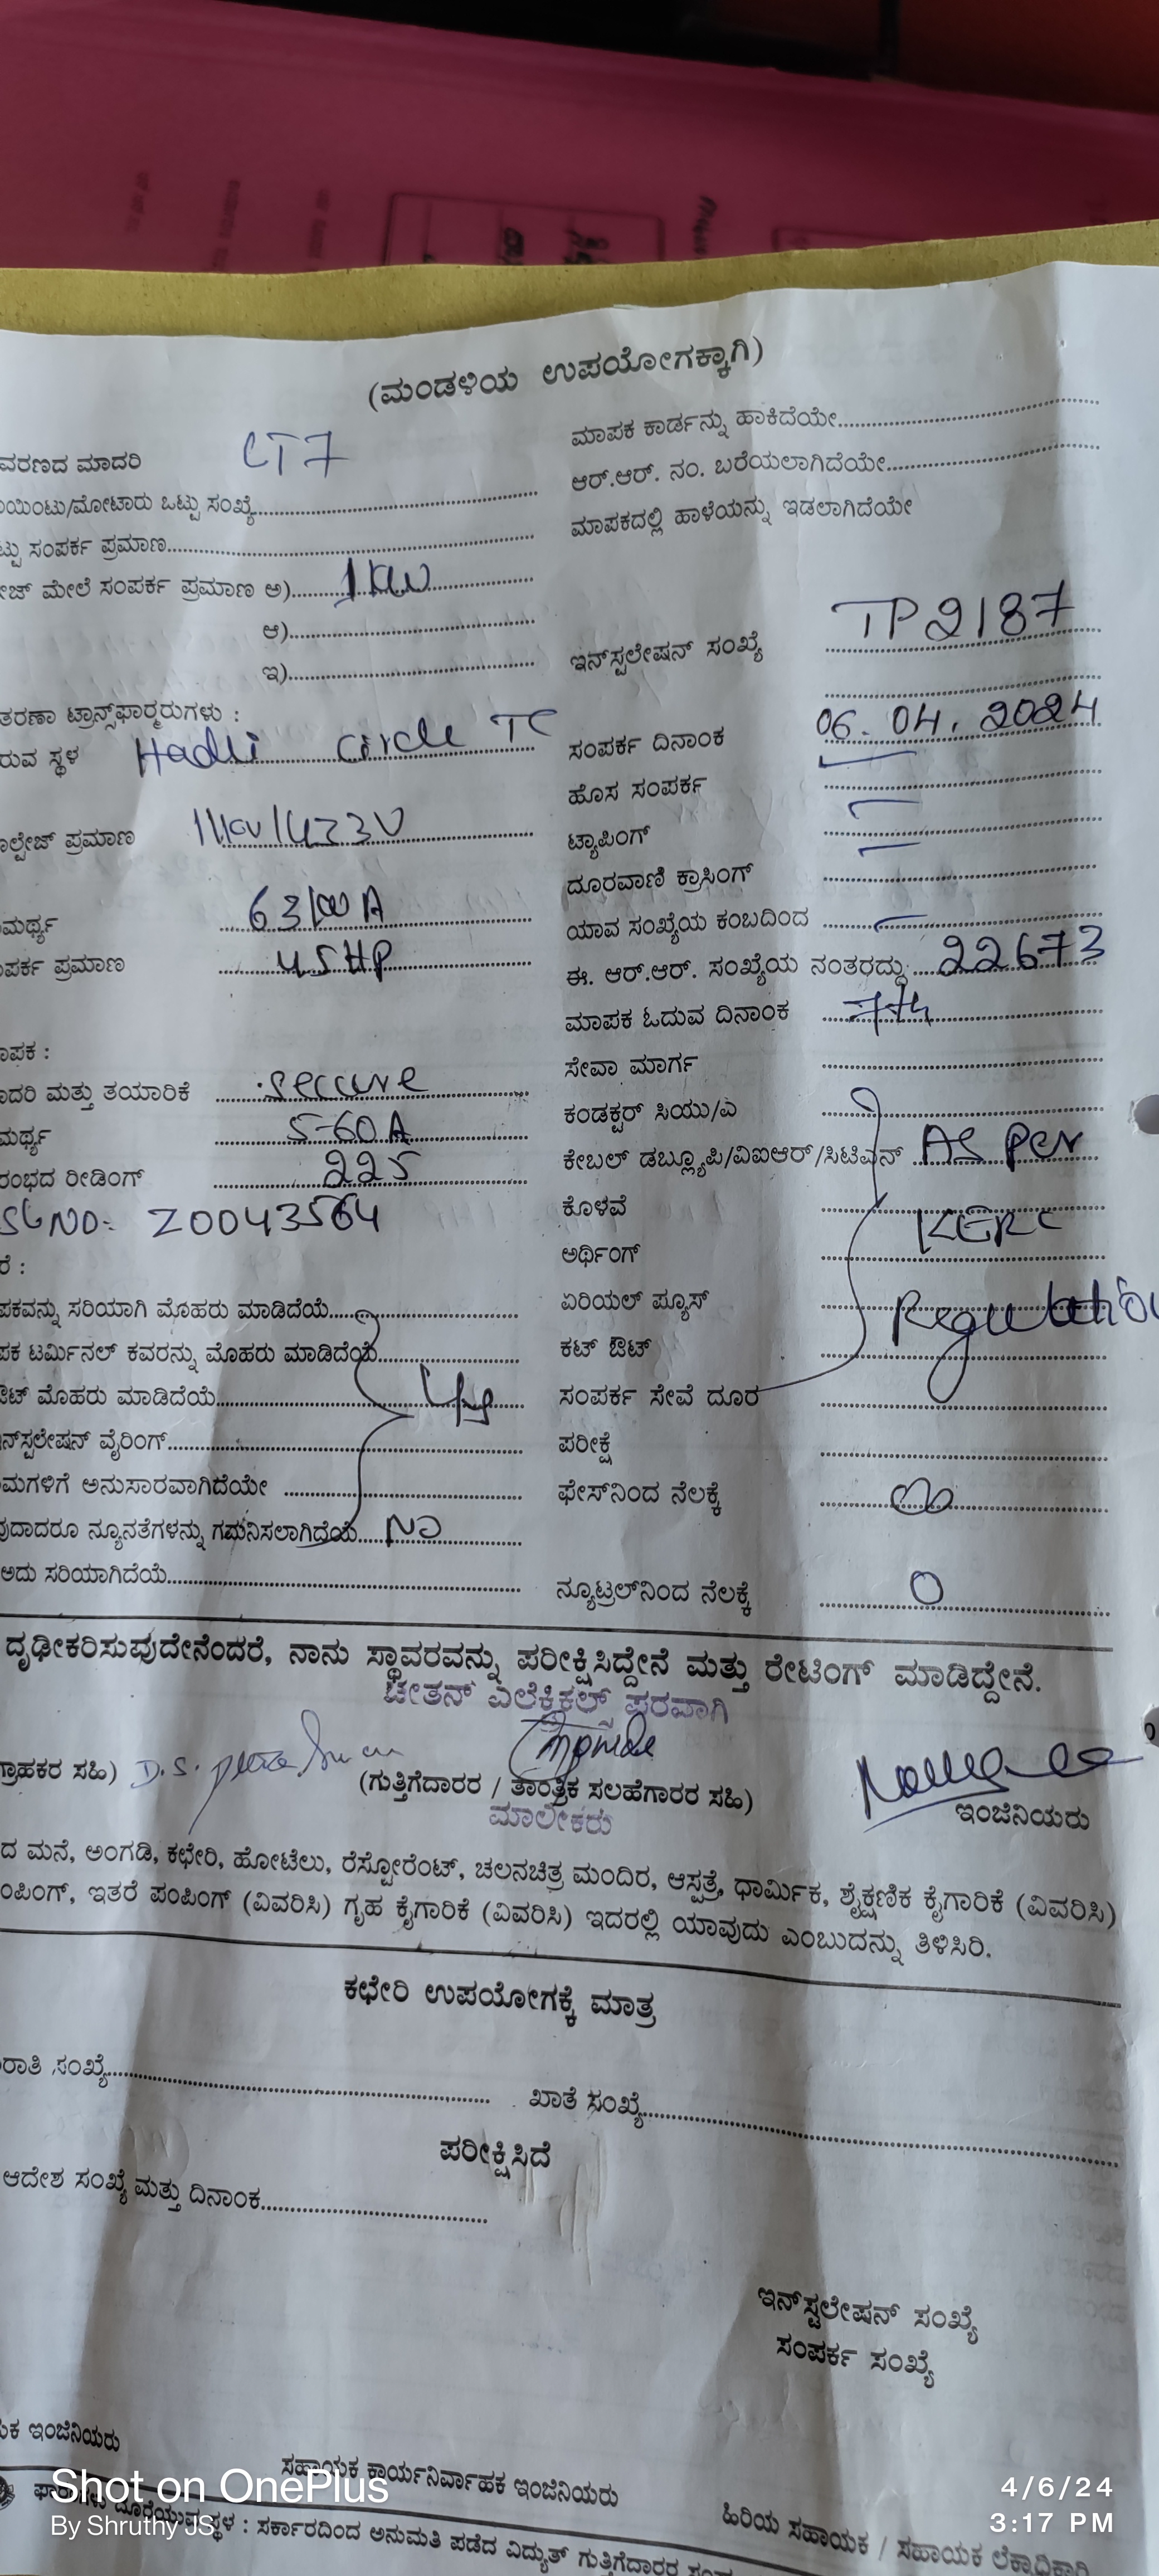 (ಮಂಡಳಿಯ ಉಪಯೋಗಕ್ಕಾಗಿ)
ವರಣದ ಮಾದರಿ LT7
ಯಿಂಟು/ಮೋಟಾರು ಒಟ್ಟು ಸಂಖ್ಯೆ
ಟ್ಟು ಸಂಪರ್ಕ ಪ್ರಮಾಣ
ೇಜ್ ಮೇಲೆ ಸಂಪರ್ಕ ಪ್ರಮಾಣ ಅ) 1KW
ಆ)
ಇ)
ತರಣಾ ಟ್ರಾನ್ಸ್‌ಫಾರ್ಮರುಗಳು :
ರುವ ಸ್ಥಳ Hadli circle TC
ಾಲ್ಟೇಜ್ ಪ್ರಮಾಣ
ಮರ್ಥ್ಯ 63/100 A
ಪರ್ಕ ಪ್ರಮಾಣ 45HP
ಾಪಕ :
ಾದರಿ ಮತ್ತು ತಯಾರಿಕೆ secure
ಮರ್ಥ್ಯ 5-60A
ರಂಭದ ರೀಡಿಂಗ್ 225
SLNO: Z0043564
ರೆ :
ಪಕವನ್ನು ಸರಿಯಾಗಿ ಮೊಹರು ಮಾಡಿದೆಯೆ
ಪಕ ಟರ್ಮಿನಲ್ ಕವರನ್ನು ಮೊಹರು ಮಾಡಿದೆಯೆ
ಔಟ್ ಮೊಹರು ಮಾಡಿದೆಯೆ
ನ್‌ಸ್ಟಲೇಷನ್ ವೈರಿಂಗ್
ಮಗಳಿಗೆ ಅನುಸಾರವಾಗಿದೆಯೇ
ವುದಾದರೂ ನ್ಯೂನತೆಗಳನ್ನು ಗಮನಿಸಲಾಗಿದ್ರೆಯೆ NO
ಅದು ಸರಿಯಾಗಿದೆಯೆ
ಮಾಪಕ ಕಾರ್ಡನ್ನು ಹಾಕಿದೆಯೇ
ಆರ್.ಆರ್. ನಂ. ಬರೆಯಲಾಗಿದೆಯೇ
ಮಾಪಕದಲ್ಲಿ ಹಾಳೆಯನ್ನು ಇಡಲಾಗಿದೆಯೇ
ಇನ್‌ಸ್ಟಲೇಷನ್ ಸಂಖ್ಯೆ TP2187
ಸಂಪರ್ಕ ದಿನಾಂಕ 06.04.2024
ಹೊಸ ಸಂಪರ್ಕ
ಟ್ಯಾಪಿಂಗ್
ದೂರವಾಣಿ ಕ್ರಾಸಿಂಗ್
ಯಾವ ಸಂಖ್ಯೆಯ ಕಂಬದಿಂದ
ಈ. ಆರ್.ಆರ್. ಸಂಖ್ಯೆಯ ನಂತರದ್ದು 22673
ಮಾಪಕ ಓದುವ ದಿನಾಂಕ 7th
ಸೇವಾ ಮಾರ್ಗ
ಕಂಡಕ್ಟರ್ ಸಿಯು/ಎ
ಕೇಬಲ್ ಡಬ್ಲ್ಯೂಪಿ/ವಿಐಆರ್/ಸಿಟಿಎಸ್ AS per
ಕೊಳವೆ KERC
ಅರ್ಥಿಂಗ್
ಏರಿಯಲ್ ಪ್ಯೂಸ್ Regulation
ಕಟ್ ಔಟ್
ಸಂಪರ್ಕ ಸೇವೆ ದೂರ
ಪರೀಕ್ಷೆ
ಫೇಸ್‌ನಿಂದ ನೆಲಕ್ಕೆ ∞
ನ್ಯೂಟ್ರಲ್‌ನಿಂದ ನೆಲಕ್ಕೆ 0
ದೃಢೀಕರಿಸುವುದೇನೆಂದರೆ, ನಾನು ಸ್ಥಾವರವನ್ನು ಪರೀಕ್ಷಿಸಿದ್ದೇನೆ ಮತ್ತು ರೇಟಿಂಗ್ ಮಾಡಿದ್ದೇನೆ.
ಚೇತನ್ ಎಲೆಕ್ಟ್ರಿಕಲ್ಸ್ ಪರವಾಗಿ
ಗ್ರಾಹಕರ ಸಹಿ) (ಗುತ್ತಿಗೆದಾರರ / ತಾಂತ್ರಿಕ ಸಲಹೆಗಾರರ ಸಹಿ) ಇಂಜಿನಿಯರು
ಮಾಲೀಕರು
ದ ಮನೆ, ಅಂಗಡಿ, ಕಛೇರಿ, ಹೋಟೆಲು, ರೆಸ್ಟೋರೆಂಟ್, ಚಲನಚಿತ್ರ ಮಂದಿರ, ಆಸ್ಪತ್ರೆ, ಧಾರ್ಮಿಕ, ಶೈಕ್ಷಣಿಕ ಕೈಗಾರಿಕೆ (ವಿವರಿಸಿ)
ಂಪಿಂಗ್, ಇತರೆ ಪಂಪಿಂಗ್ (ವಿವರಿಸಿ) ಗೃಹ ಕೈಗಾರಿಕೆ (ವಿವರಿಸಿ) ಇದರಲ್ಲಿ ಯಾವುದು ಎಂಬುದನ್ನು ತಿಳಿಸಿರಿ.
ಕಛೇರಿ ಉಪಯೋಗಕ್ಕೆ ಮಾತ್ರ
ರಾತಿ ಸಂಖ್ಯೆ ಖಾತೆ ಸಂಖ್ಯೆ
ಪರೀಕ್ಷಿಸಿದೆ
ಆದೇಶ ಸಂಖ್ಯೆ ಮತ್ತು ದಿನಾಂಕ
ಇನ್‌ಸ್ಟಲೇಷನ್ ಸಂಖ್ಯೆ
ಸಂಪರ್ಕ ಸಂಖ್ಯೆ
ಯಕ ಇಂಜಿನಿಯರು
ಸಹಾಯಕ ಕಾರ್ಯನಿರ್ವಾಹಕ ಇಂಜಿನಿಯರು
ಹಿರಿಯ ಸಹಾಯಕ / ಸಹಾಯಕ ಲೆಕ್ಕಾಧಿಕಾರಿ
ದೊರೆಯುವ ಸ್ಥಳ : ಸರ್ಕಾರದಿಂದ ಅನುಮತಿ ಪಡೆದ ವಿದ್ಯುತ್ ಗುತ್ತಿಗೆದಾರರ
Shot on OnePlus
By Shruthy JS
4/6/24
3:17 PM